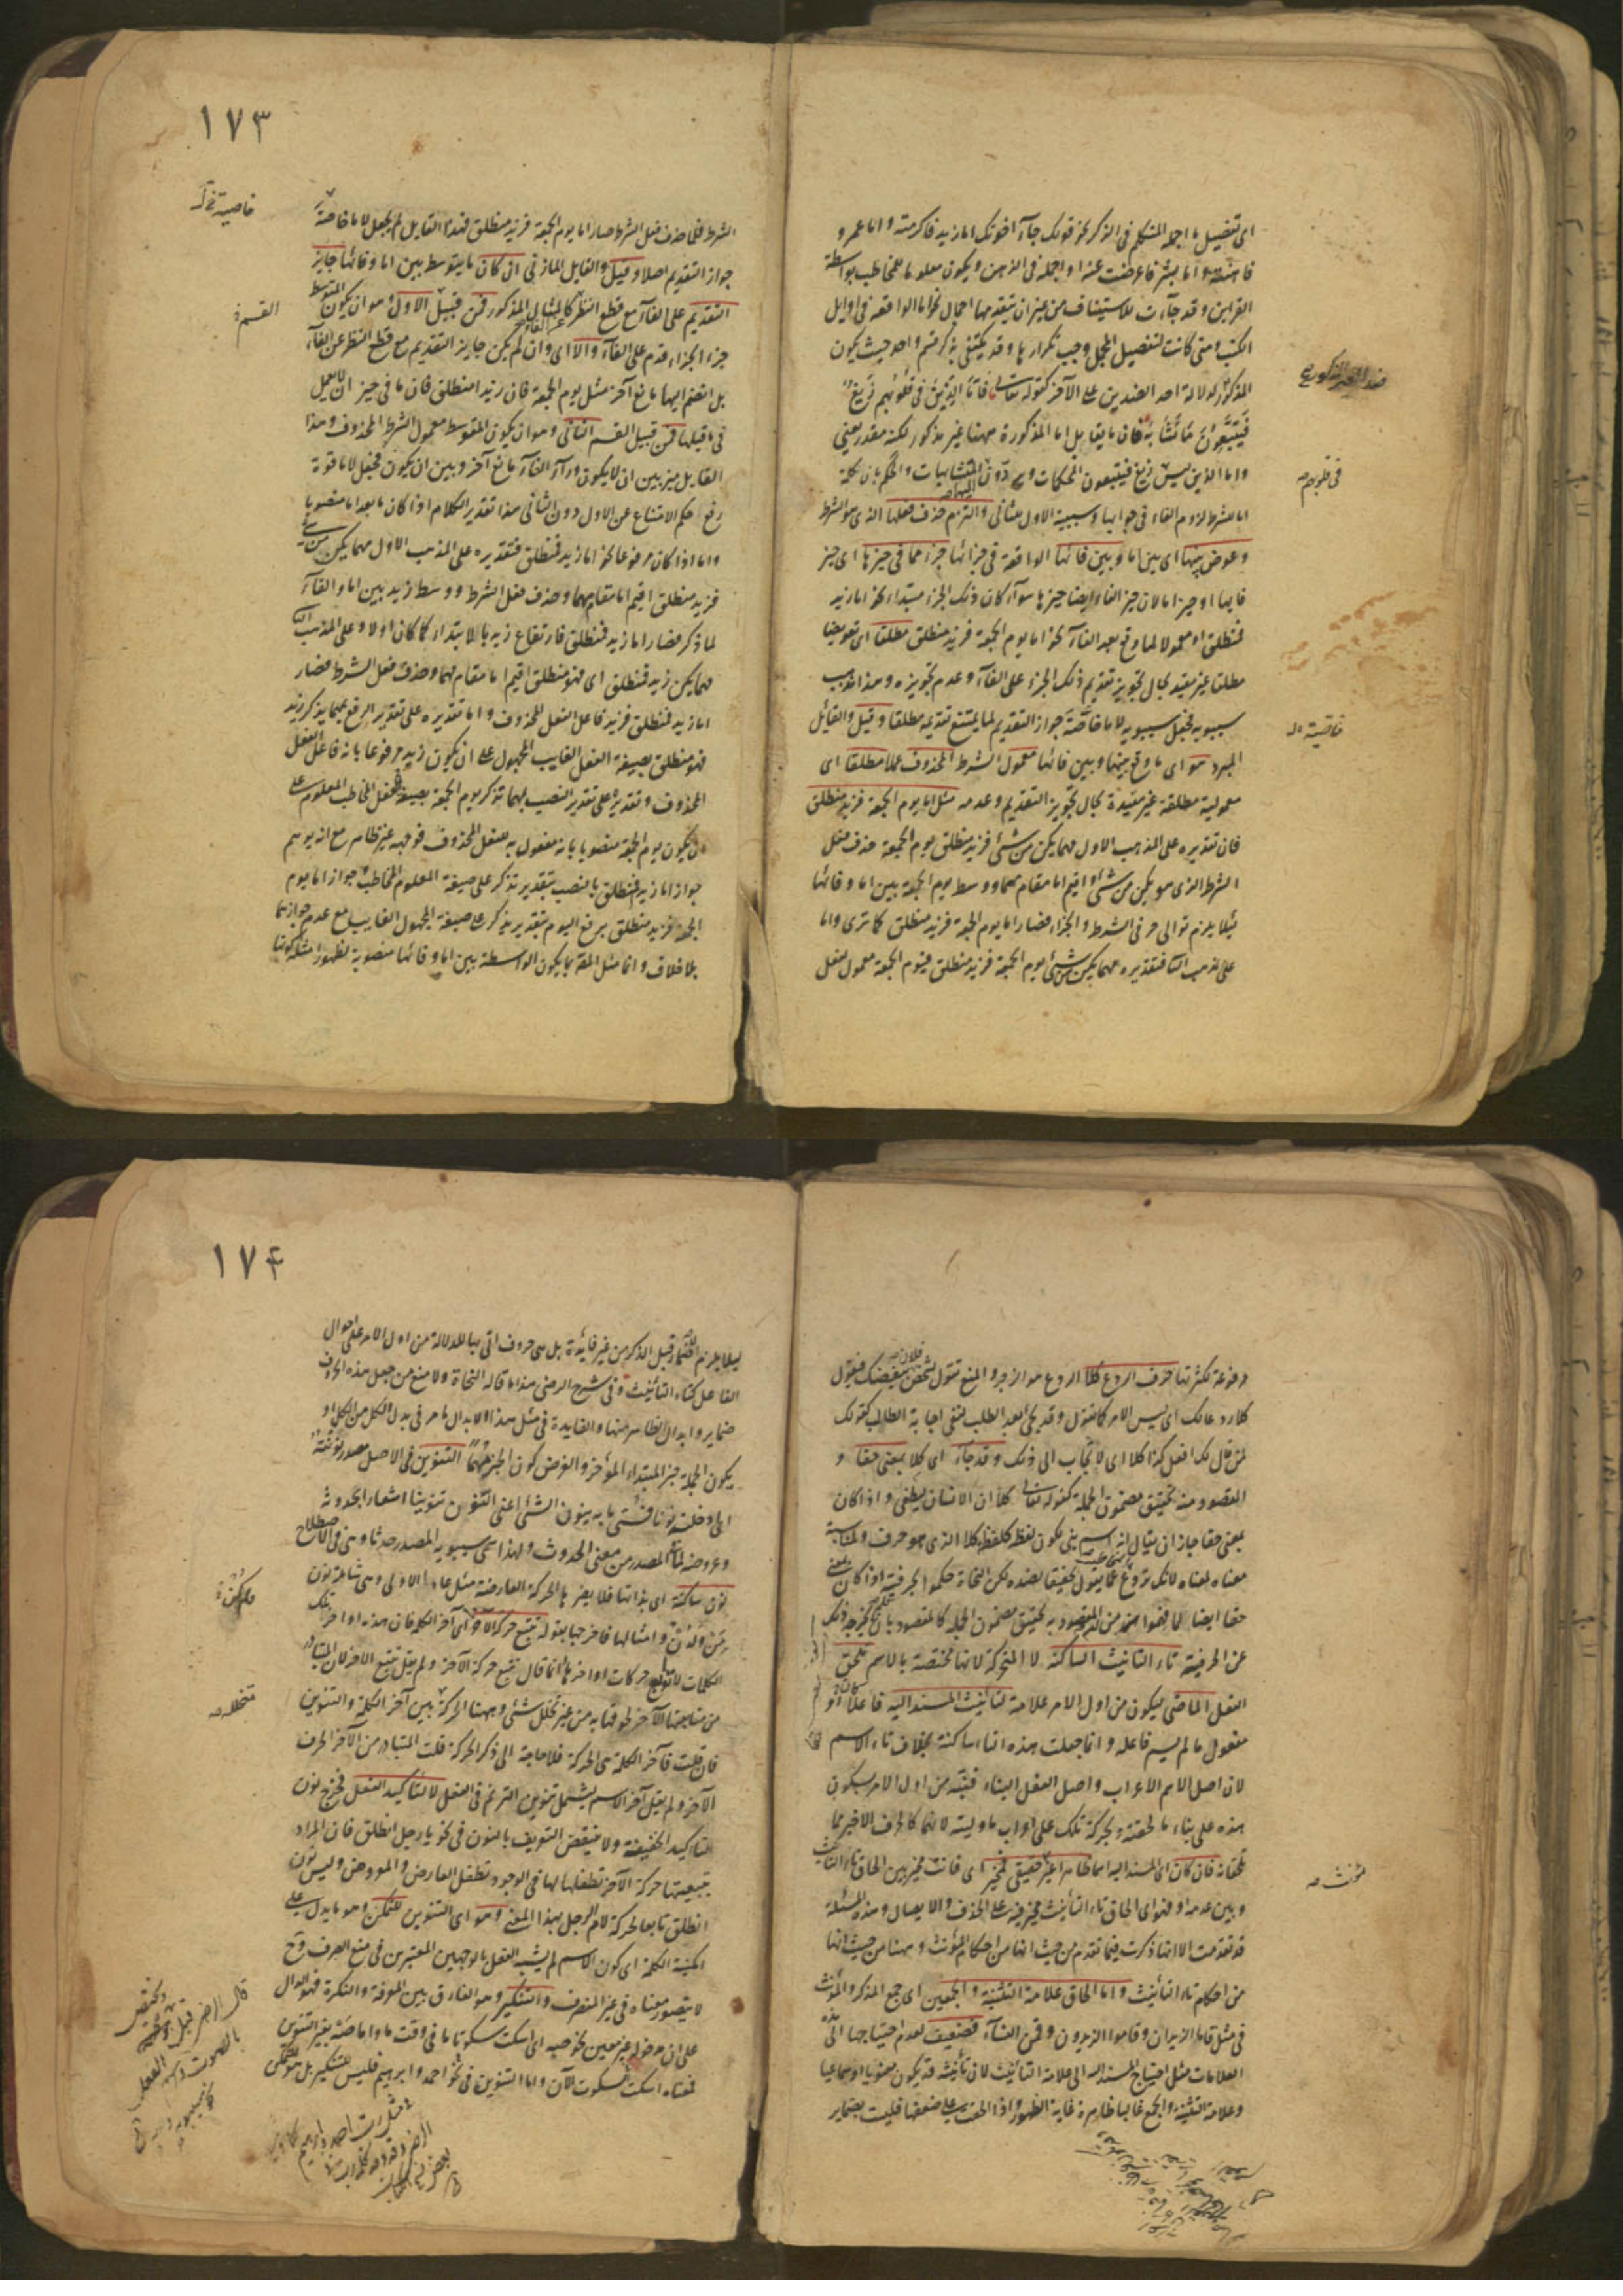 اى تفصيل ما اجمله المتكلم فى الذكر نحو قولك جاء اخوتك اما زيد فاكرمته واما عمرو
فاهنته واما بشر فاعرضت عنه او اجمله فى الذهن ويكون معلوما للمخاطب بواسطة
القراين وقد جاءت للاستيناف من غير ان يتقدمها اجمال نحو اما الواقعة فى اوايل
الكتب ومتى كانت لتفصيل المجمل وجب تكرارها وقد يكتفى بذكر قسم واحد حيث يكون
المذكور لدلالة احد الضدين على الآخر كقوله تعالى فاما الذين فى قلوبهم زيغ
فيتبعون ما تشابه فان ما يقابل اما المذكورة ههنا غير مذكور لكنه مقدر يعنى
واما الذين ليس زيغ فيتبعون المحكمات ويردون المتشابهات والحكم بان كلمة
اليها صه
اما للشرط لزوم الفاء فى جوابها وسببية الاول للثانى والتزم حذف فعلها الذى هو الشرط
وعوض بينها اى بين اما وبين فائها الواقعة فى جزائها جزء مما فى حيزها اى حيز
فايها او حيز اما لان حيز الفاء ايضا حيزها سواء كان ذلك الجزء مبتداء نحو اما زيد
فمنطلق او معمولا لما وقع بعد الفاء نحو اما يوم الجمعة فزيد منطلق مطلقا اى تعويضا
مطلقا غير مقيد بحال تجويز تقديم ذلك الجزء على الفاء وعدم تجويزه وهذا مذهب
سيبويه فجعل سيبويه لاما خاصة جواز التقديم لما يمتنع تقديمه مطلقا وقيل والقائل
المبرد هو اى ما وقع بينها وبين فائها معمول الشرط المحذوف عملا مطلقا اى
معمولية مطلقة غير مقيدة بحال تجويز التقديم وعدمه مثل اما يوم الجمعة فزيد منطلق
فان تقديره على المذهب الاول مهما يكن من شئ فزيد منطلق يوم الجمعة حذف فعل
الشرط الذى هو يكن من شئ واقيم اما مقام مهما ووسط يوم الجمعة بين اما وفائها
لئلا يلزم توالى حرفى الشرط والجزاء فصار اما يوم الجمعة فزيد منطلق كما ترى واما
على المذهب الثا فتقديره مهما يكن من شئ يوم الجمعة فزيد منطلق فيوم الجمعة معمول لفعل
فى قلوبهم صه
خاصية
١٧٣
الشرط فلما حذف فعل الشرط صار اما يوم الجمعة فزيد منطلق فهذا القايل لم يجعل لاما خاصة
جواز التقديم اصلا وقيل والقايل المازنى ان كان ما يتوسط بين اما وفائها جايز
التقديم على الفاء مع قطع النظر كالمثال المذكور فمن قبيل الاول وهو ان يكون المتوسط
عن الفاء
جزء الجزاء قدم على الفاء والا اى وان لم يكن جايز التقديم مع قطع النظر عن الفاء
بل انضم اليها مانع آخر مثل يوم الجمعة فان زيدا منطلق فان ما فى حيز ان لا يعمل
فى ما قبلها فمن قبيل القسم الثانى وهو ان يكون المتوسط معمول الشرط المحذوف وهذا
القايل ميز بين ان لا يكون وراء الفاء مانع آخر وبين ان يكون فجعل لاما قوة
رفع حكم الامتناع عن الاول دون الثانى هذا تقدير الكلام اذا كان ما بعد اما منصوبا
واما اذا كان مرفوعا نحو اما زيد فمنطلق فتقديره على المذهب الاول مهما يكن من شئ
فزيد منطلق اقيم اما مقام مهما وحذف فعل الشرط ووسط زيد بين اما والفاء
لما ذكر فصار اما زيد فمنطلق فارتفاع زيد بالابتداء كما كان اولا وعلى المذهب الثا
مهما يكن زيد فمنطلق اى فهو منطلق اقيم اما مقام مهما وحذف فعل الشرط فصار
اما زيد فمنطلق فزيد فاعل الفعل المحذوف واما تقديره على تقدير الرفع بمهما يذكر زيد
فهو منطلق بصيغة الفعل الغايب المجهول على ان يكون زيد مرفوعا بانه فاعل الفعل
المحذوف وتقديره على تقدير النصب بمهما تذكر يوم الجمعة بصيغة الفعل المخاطب المعلوم على
ان يكون يوم الجمعة منصوبا بانه مفعول به للفعل المحذوف فوجهه غير ظاهر مع انه يوهم
جواز اما زيدا فمنطلق بالنصب بتقدير تذكر على صيغة المعلوم المخاطب وجواز اما يوم
الجمعة فزيد منطلق برفع اليوم بتقدير يذكر على صيغة المجهول الغايب مع عدم جوازهما
بلا خلاف وانما مثل المص بما يكون الواسطة بين اما وفائها منصوبة لظهور امثلة كونها
خاصية
القسم
مرفوعة لكثرتها حرف الردع كلا الردع هو الزجر والمنع تقول لشخص يبغضك فيقول
فلان صه
كلا ردعا لك اى ليس الامر كما تقول وقد يجئ بعد الطلب لنفى اجابة الطالب كقولك
لمن قال لك افعل كذا كلا اى لا يجاب الى ذلك وقد جاء اى كلا بمعنى حقا و
المقصود منه تحقيق مضمون الجملة كقوله تعالى كلا ان الانسان ليطغى واذا كان
بمعنى حقا جاز ان يقال انه اسم بنى لكون لفظه كلفظ كلا الذى هو حرف ولمناسبة
معناه لمعناه لانك تردع عما يقول تحقيقا لضده لكن النحاة حكموا بحرفيته اذا كان بمعنى
حقا ايضا لما فهموا من ان المقصود به تحقيق مضمون الجملة كالمقصود بان فلم يخرجه ذلك
عن الحرفية تاء التانيث الساكنة لا المتحركة لانها مختصة بالاسم تلحق
الفعل الماضى ليكون من اول الامر علامة لتانيث المسند اليه فاعلا كان او
مفعول ما لم يسم فاعله وانما جعلت هذه التاء ساكنة بخلاف تاء الاسم
لان اصل الاسم الاعراب واصل الفعل البناء فنبه من اول الامر بسكون
هذه على بناء ما لحقته وبحركة تلك على اعراب ما وليته لانهما كالحرف الاخير مما
تلحقانه فان كان اى المسند اليه اسما ظاهرا غير حقيقى فمخير اى فانت مخير بين الحاق تاء التانيث
وبين عدمه او فهو اى الحاق تاء التانيث مخير فيه على الحذف والايصال وهذه المسئلة
قد تقدمت الا انها ذكرت فيما تقدم من حيث انها من احكام المؤنث وههنا من حيث انها
من احكام تاء التانيث واما الحاق علامة التثنية والجمعين اى جمع المذكر والمؤنث
فى مثل قاما الزيدان وقاموا الزيدون وقمن النساء فضعيف لعدم احتياجها الى هذه
العلامات مثل احتياج المسند اليه الى علامة التانيث لان تانيثه قد يكون معنويا او سماعيا
وعلامة التثنية والجمع غالبا ظاهرة غاية الظهور واذا الحقت على ضعفها فليست بضماير
مؤنث صه
١٧٤
ليلا يلزم الاضمار قبل الذكر من غير فايدة بل هى حروف اتى بها للدلالة من اول الامر على احوال
الفاعل كتاء التانيث وفى شرح الرضى هذا ما قاله النحاة ولا منع من جعل هذه الاحرف
ضماير وابدال الظاهر منها والفايدة فى مثل هذا الابدال ما مر فى بدل الكل من الكل او
يكون الجملة خبر المبتداء المؤخر والغرض كون الخبر مهما التنوين فى الاصل مصدر نونته
اى ادخلته نونا فسمى ما به ينون الشئ اعنى النون تنوينا اشعارا بحدوثه
وعروضه لما فى المصدر من معنى الحدوث ولهذا سمى سيبويه المصدر حدثا وهى فى الاصطلاح
نون ساكنة اى بذاتها فلا يضرها الحركة العارضة مثل عاد الاولى وهى شاملة لنون
من ولدن وامثالها فاخرجها بقوله تتبع حركة الآخر اى آخر الكلمة فان هذه اواخر تلك
الكلمات لا توابع حركات اواخرها وانما قال تتبع حركة الآخر ولم يقل تتبع الاخر لان المتبادر
من متابعتها الآخر لحوقها به من غير تخلل شئ وههنا الحركة بين آخر الكلمة والتنوين
فان قلت فآخر الكلمة هى الحركة فلا حاجة الى ذكر الحركة قلت المتبادر من الآخر الحرف
الآخر ولم يقل آخر الاسم ليشمل تنوين الترنم فى الفعل لا لتاكيد الفعل فخرج نون
التاكيد الخفيفة ولا ينتقض التعريف بالنون فى نحو يا رجل انطلق فان المراد
بتبعيتها حركة الآخر تطفلها لها فى الوجود تطفل العارض والمعروض وليس نون
انطلق تابعا لحركة لام الرجل بهذا المعنى وهو اى التنوين للتمكن وهو ما يدل على
امكنية الكلمة اى كون الاسم لم يشبه الفعل بالوجهين المعتبرين فى منع الصرف وح
لا يتصور معناه فى غير المنصرف والتنكير وهو الفارق بين المعرفة والنكرة فهو الدال
على ان مدخوله غير معين نحو صه اى اسكت سكوتا ما فى وقت ما واما صه بغير التنوين
فمعناه اسكت السكوت الآن واما التنوين فى نحو احمد وابراهيم فليس للتنكير بل هو للتمكن
تتخلل صه